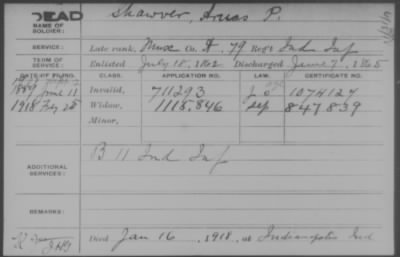 DEAD
NAME OF SOLDIER: Shawver, Amos P.
SERVICE: Late rank, Mus Co. A, 79 Reg't Ind Inf
TERM OF SERVICE: Enlisted July 15, 1862 Discharged June 7, 1865
DATE OF FILING. CLASS. APPLICATION NO. LAW. CERTIFICATE NO.
1889 June 11 Invalid, 711293 1074127
1918 Feby 25 Widow, 1118.846 847839
Minor,
ADDITIONAL SERVICES: B 11 Ind Inf
REMARKS:
Died Jan 16, 1918, at Indianapolis Ind